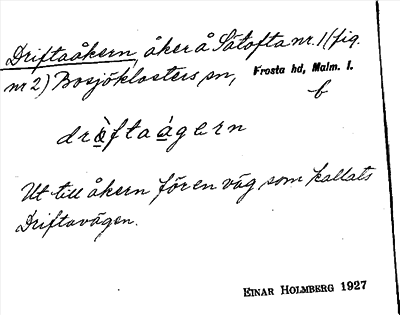 Driftaåkern, åker å Sätofta nr. 1 (fig.
nr 2) Bosjöklosters sn, Frosta hd, Malm. l.
f
Ut till åkern för en väg som kallats
Driftavägen.
EINAR HOLMBERG 1927